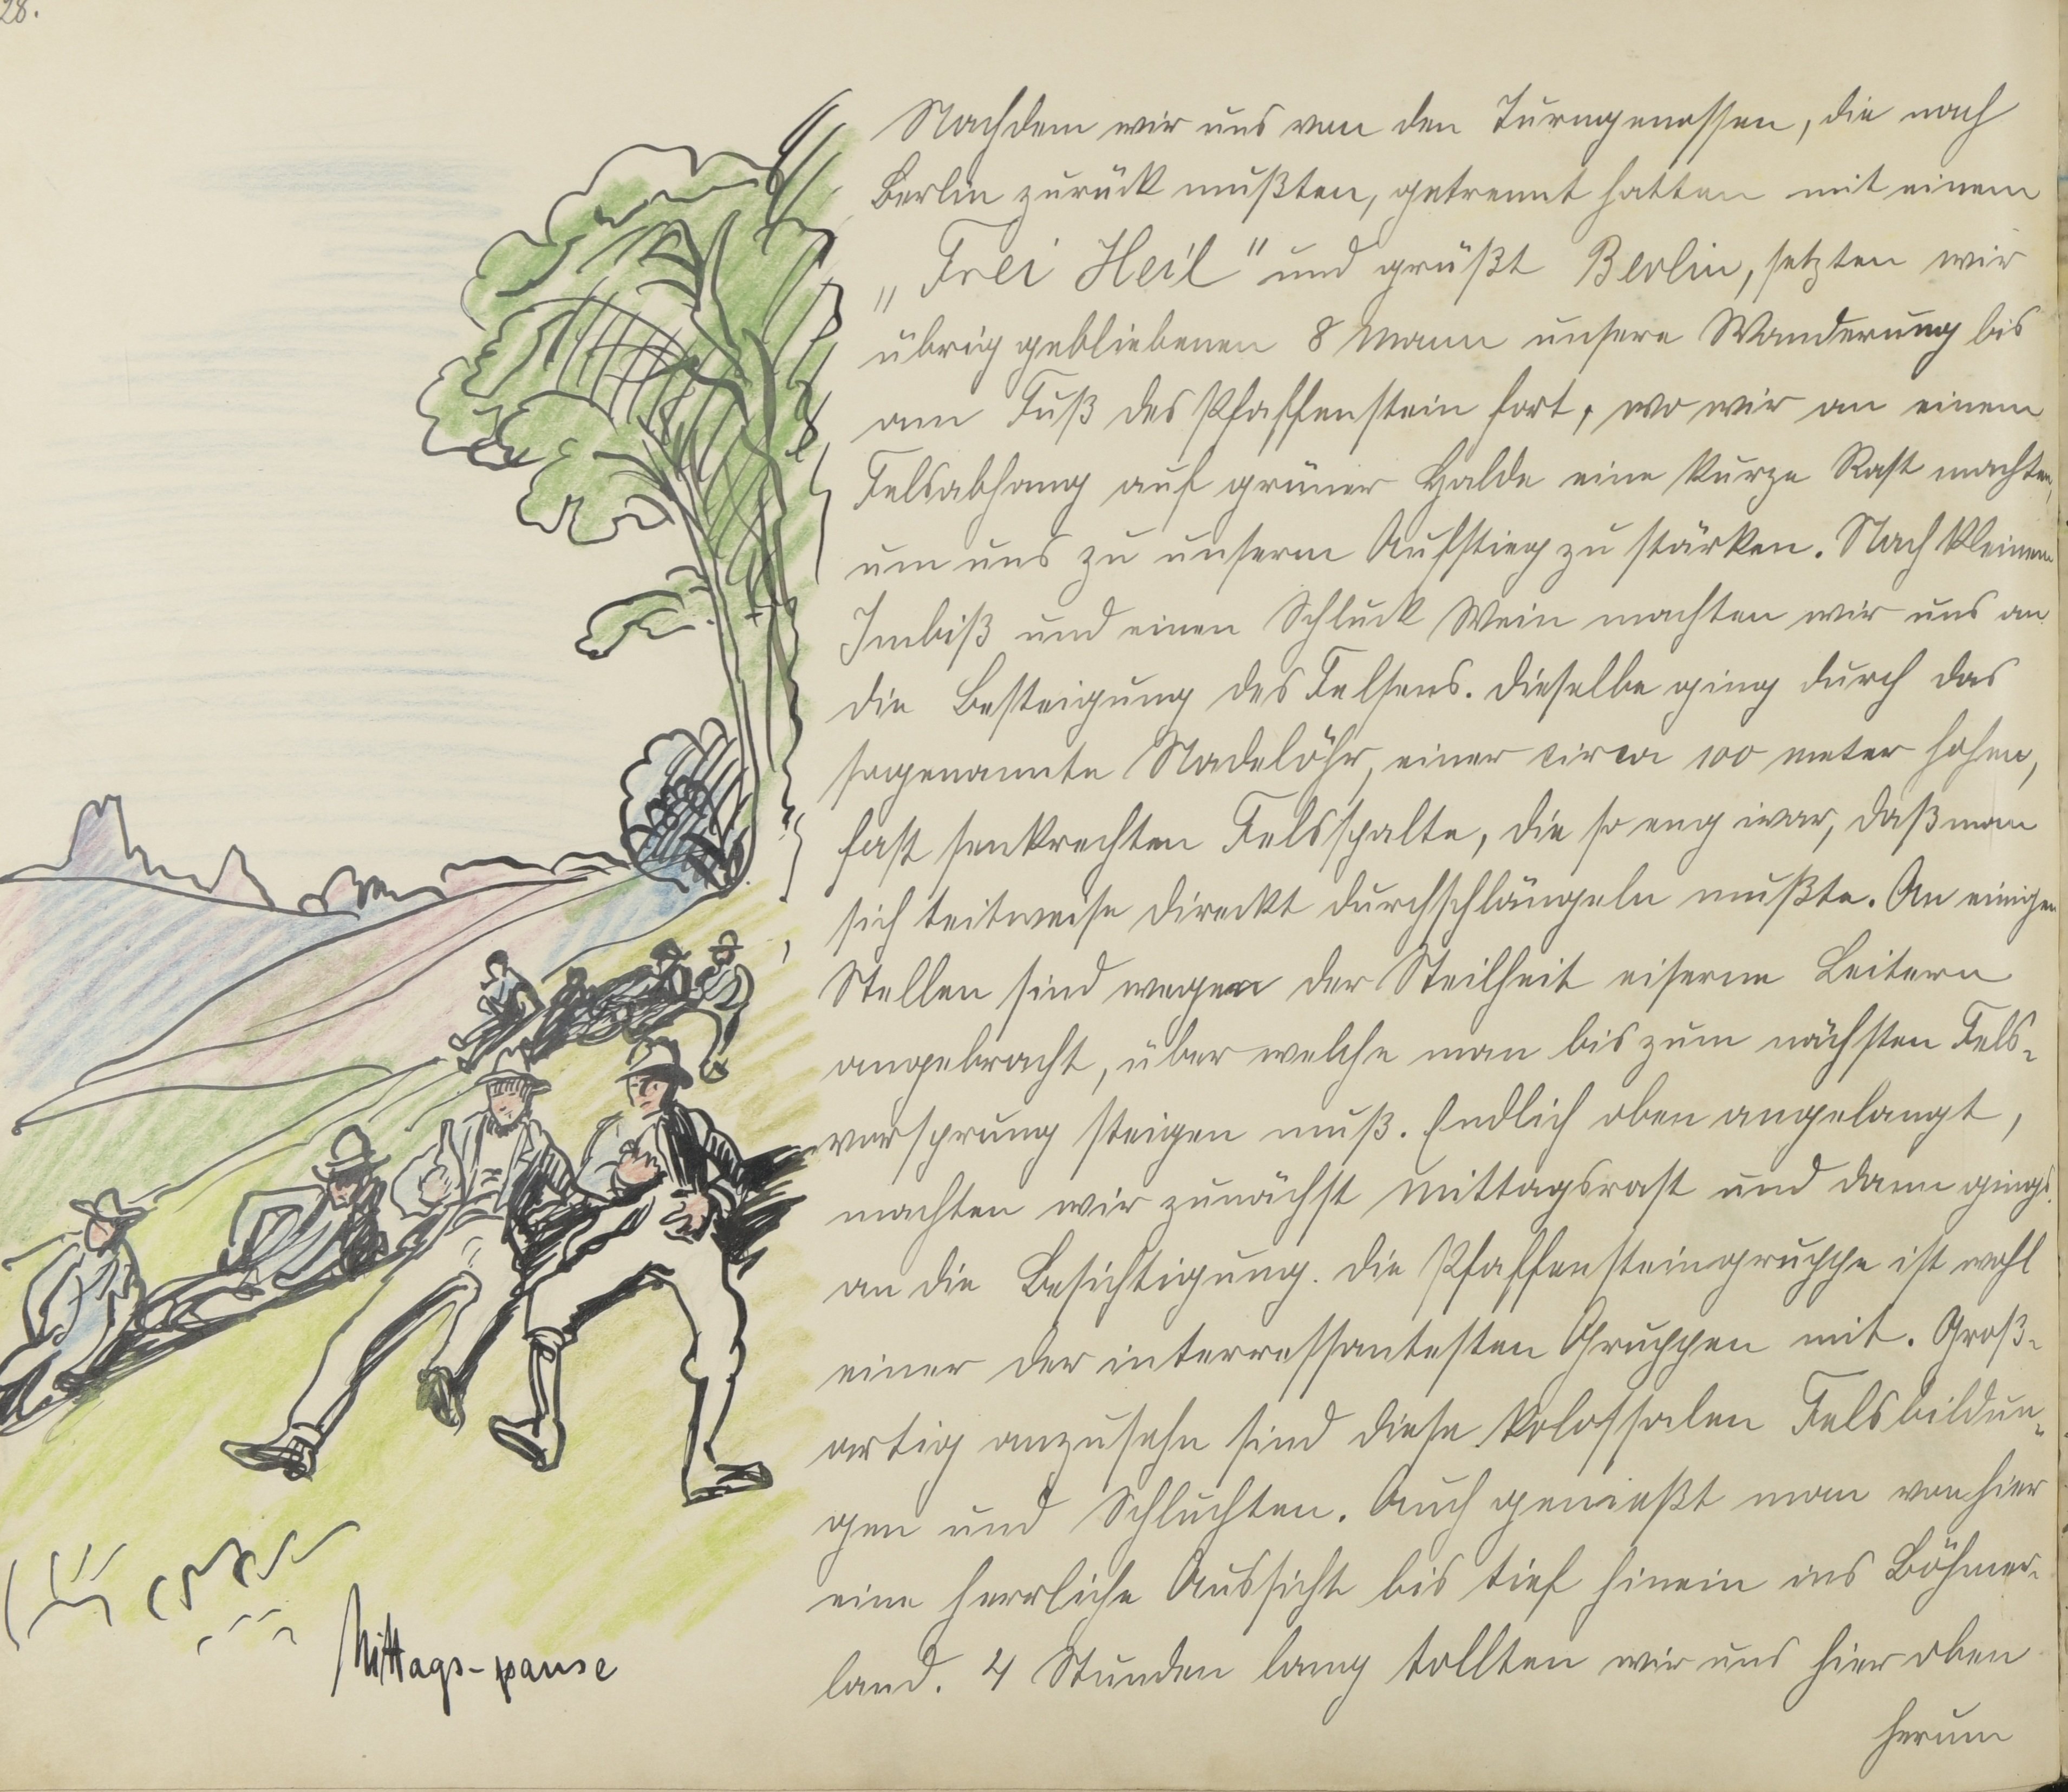 28.
Nachdem wir uns von den Turngenossen, die nach
Berlin zurück mußten, getrennt hatten mit einem
„Frei Heil" und grüßt Berlin, setzten wir
übrig gebliebenen 8 Mann unsere Wanderung bis
am Fuß des Pfaffenstein fort, wo wir an einem
Felsabhang auf grüner Halde eine kurze Rast machten,
um uns zu unserm Aufstieg zu stärken. Nach kleinem
Imbiß und einen Schluck Wein machten wir uns an
die Besteigung des Felsens. Dieselbe ging durch das
sogenannte Nadelöhr, einer circa 100 meter hohen,
fast senkrechten Felsspalte, die so eng war, daß man
sich teitweise direckt durchschlängeln mußte. An einigen
Stellen sind wegen der Steilheit eiserne Leitern
angebracht, über welche man bis zum nächsten Fels-
vorsprung steigen muß. Endlich oben angelangt,
machten wir zunächst Mittagsrast und dann gings
an die Besichtigung. Die Pfaffensteingruppe ist wohl
einer der interressantesten Gruppen mit. Groß-
artig anzusehn sind diese kolossalen Felsbildun-
gen und Schluchten. Auch genießt man von hier
eine herrliche Aussicht bis tief hinein ins Böhmer-
land. 4 Stunden lang tollten wir uns hier oben
herum
Mittags-pause